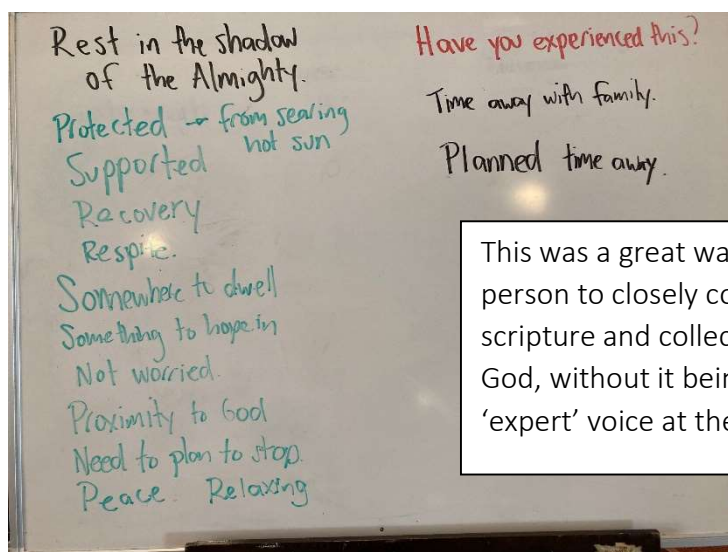 Rest in the shadow
of the Almighty.
Protected → from searing
hot sun
Supported
Recovery
Respite.
Somewhere to dwell
Something to hope in
Not worried.
Proximity to God
Need to plan to stop.
Peace. Relaxing
Have you experienced this?
Time away with family.
Planned time away.
This was a great wa
person to closely co
scripture and collec
God, without it bein
‘expert’ voice at the